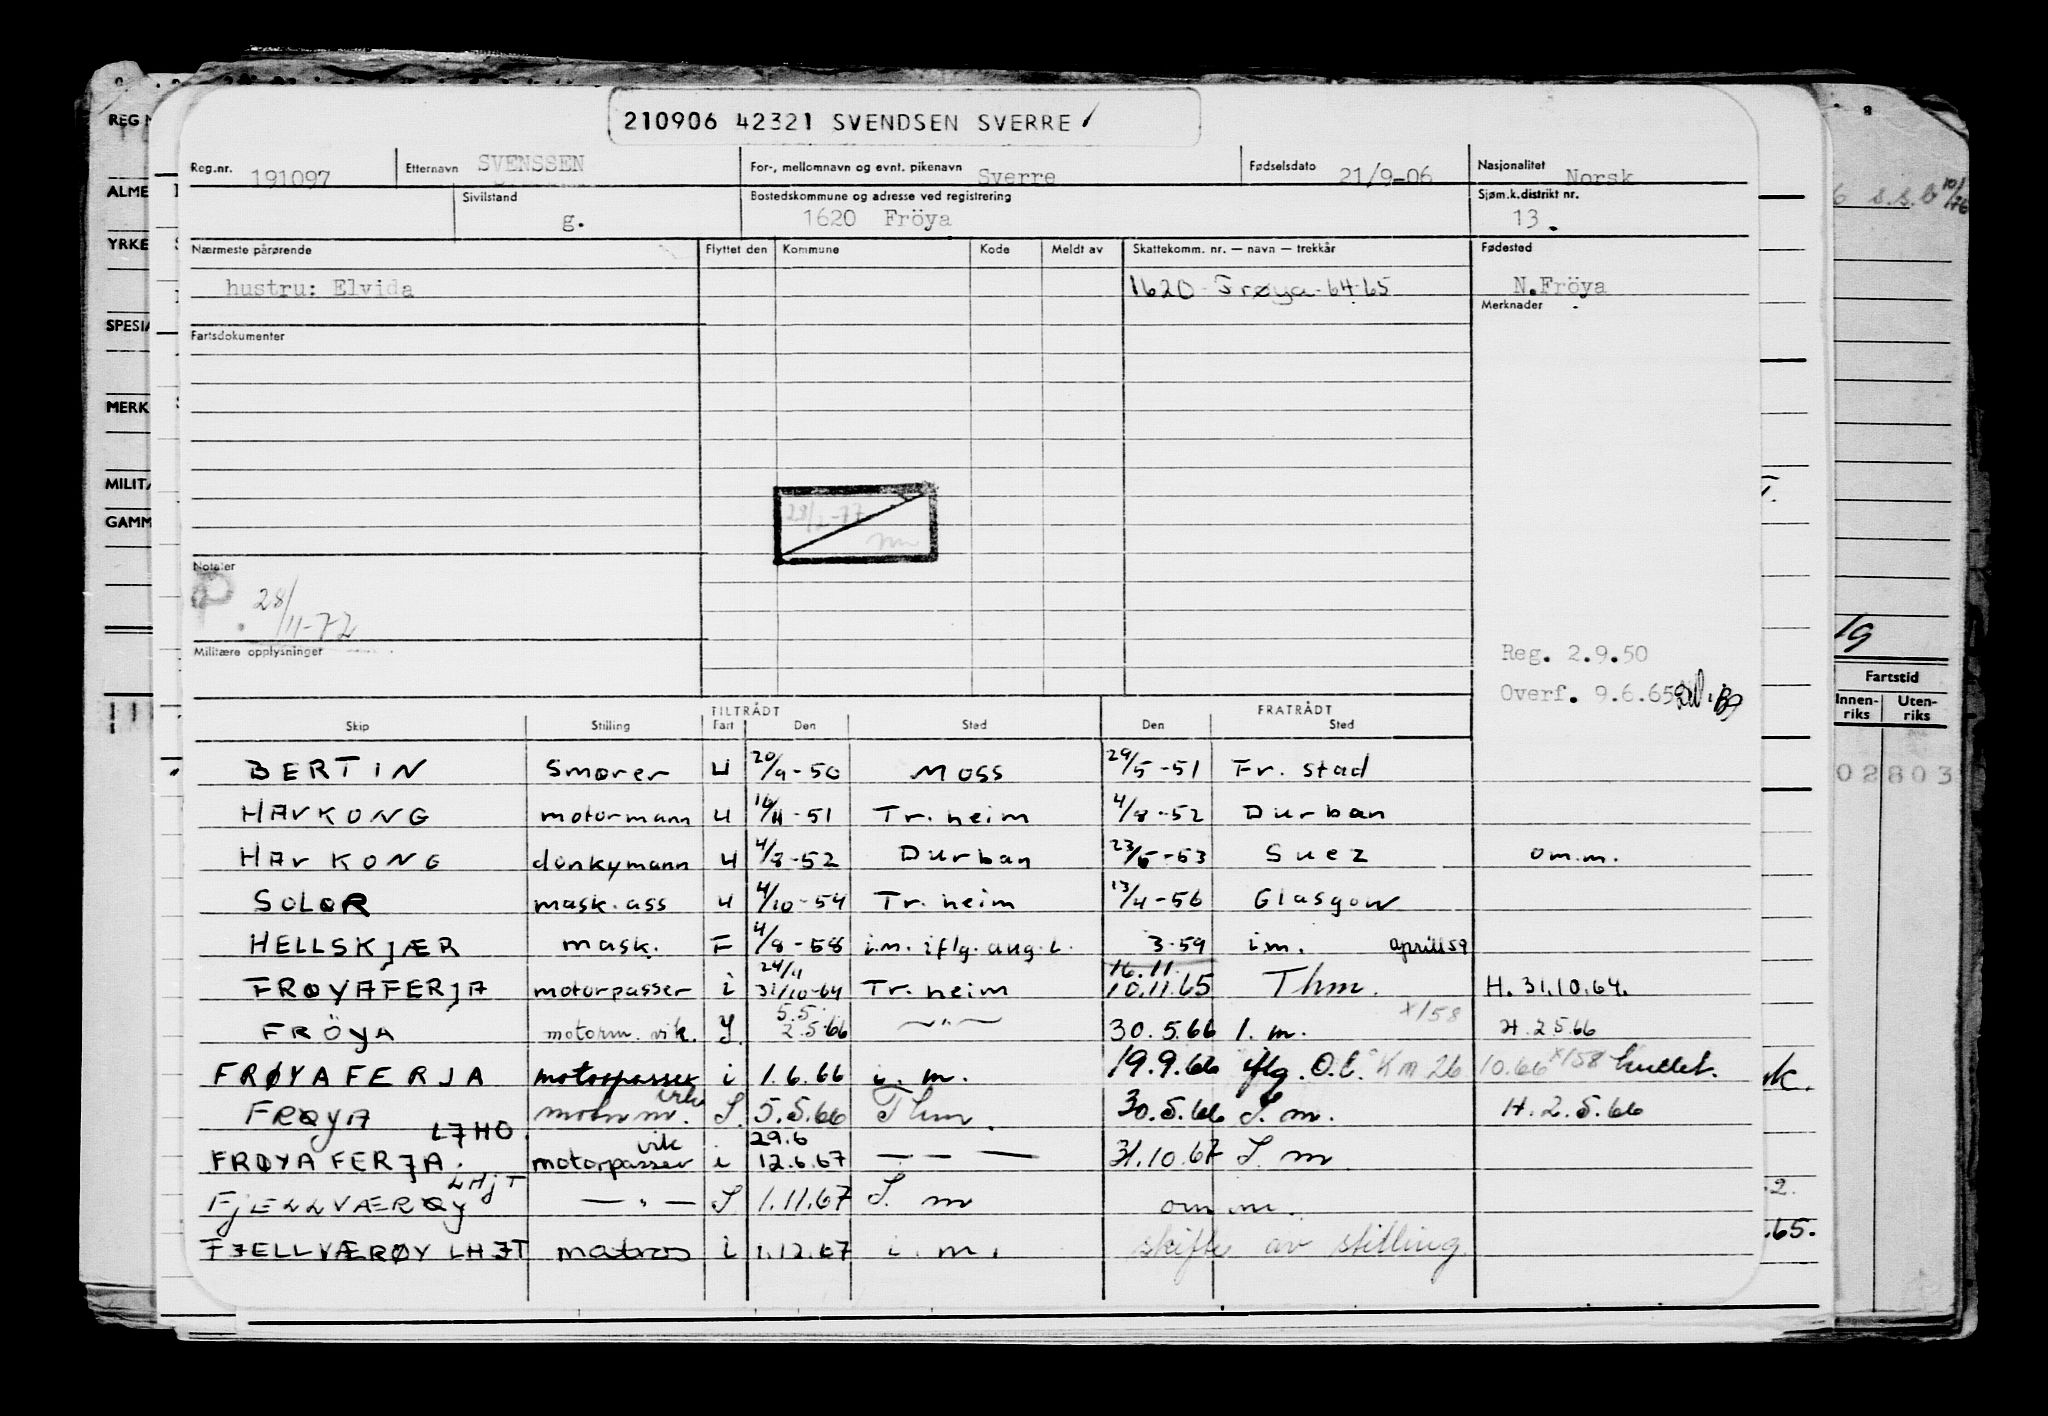 210906 42321 SVENDSEN SVERRE
Reg.nr. 191097 Etternavn SVENSSEN For-, mellomnavn og evnt. pikenavn Sverre Fødselsdato 21/9-06 Nasjonalitet Norsk
Sivilstand g. Bostedskommune og adresse ved registrering 1620 Fröya Sjøm.k.distrikt nr. 13.
Nærmeste pårørende Flyttet den Kommune Kode Meldt av Skattekomm. nr. — navn — trekkår Fødested
hustru: Elvida 1620 - Frøya - 64-65 N.Fröya
Merknader
Fartsdokumenter
28/2-77
Notater
28/11-72
Militære opplysninger
Reg. 2.9.50
Overf. 9.6.65
TILTRÅDT FRATRÅDT
Skip Stilling Fart Den Sted Den Sted
BERTIN Smører U 20/9-50 Moss 29/5-51 Fr. stad
HAVKONG motormann U 16/11-51 Tr. heim 4/8-52 Durban
HAVKONG donkymann U 4/8-52 Durban 23/5-53 Suez om.m.
SOLØR mask.ass U 4/10-54 Tr. heim 13/4-56 Glasgow
HELLSKJÆR mask. F 4/8-58 i.m. iflg. aug. L. 3-59 i.m. april 59
24/11 16.11.
FRØYAFERJA motorpasser i 31/10-64 Tr. heim 10.11.65 Thm. H. 31.10.64.
5.5 X/58
FRÖYA motorm. vik. I. 2.5.66 —"— 30.5.66 I. m. H. 2.5.66
FRØYAFERJA motorpasser i 1.6.66 i. m. 19.9.66 iflg. O.C. Km 26 10.66 X/58
vik
FRØYA motorm. I. 5.5.66 Thm. 30.5.66 I. m. H. 2.5.66
LJHO vik 29.6
FRØYAFERJA. motorpasser i 12.6.67 — — — 31.10.67 I. m
LHJT
FJELLVÆRØY — " — I 1.11.67 I. m om m.
FJELLVÆRØY LHJT matros i 1.12.67 i. m. skifte av stilling.
REG N
ALME
YRKE
SPESIA
MERK
MILITÆ
GAMM
8
s.s.b 10/1/76
19
Fartstid
Innen-riks Uten-riks
02803
.2.
.65.